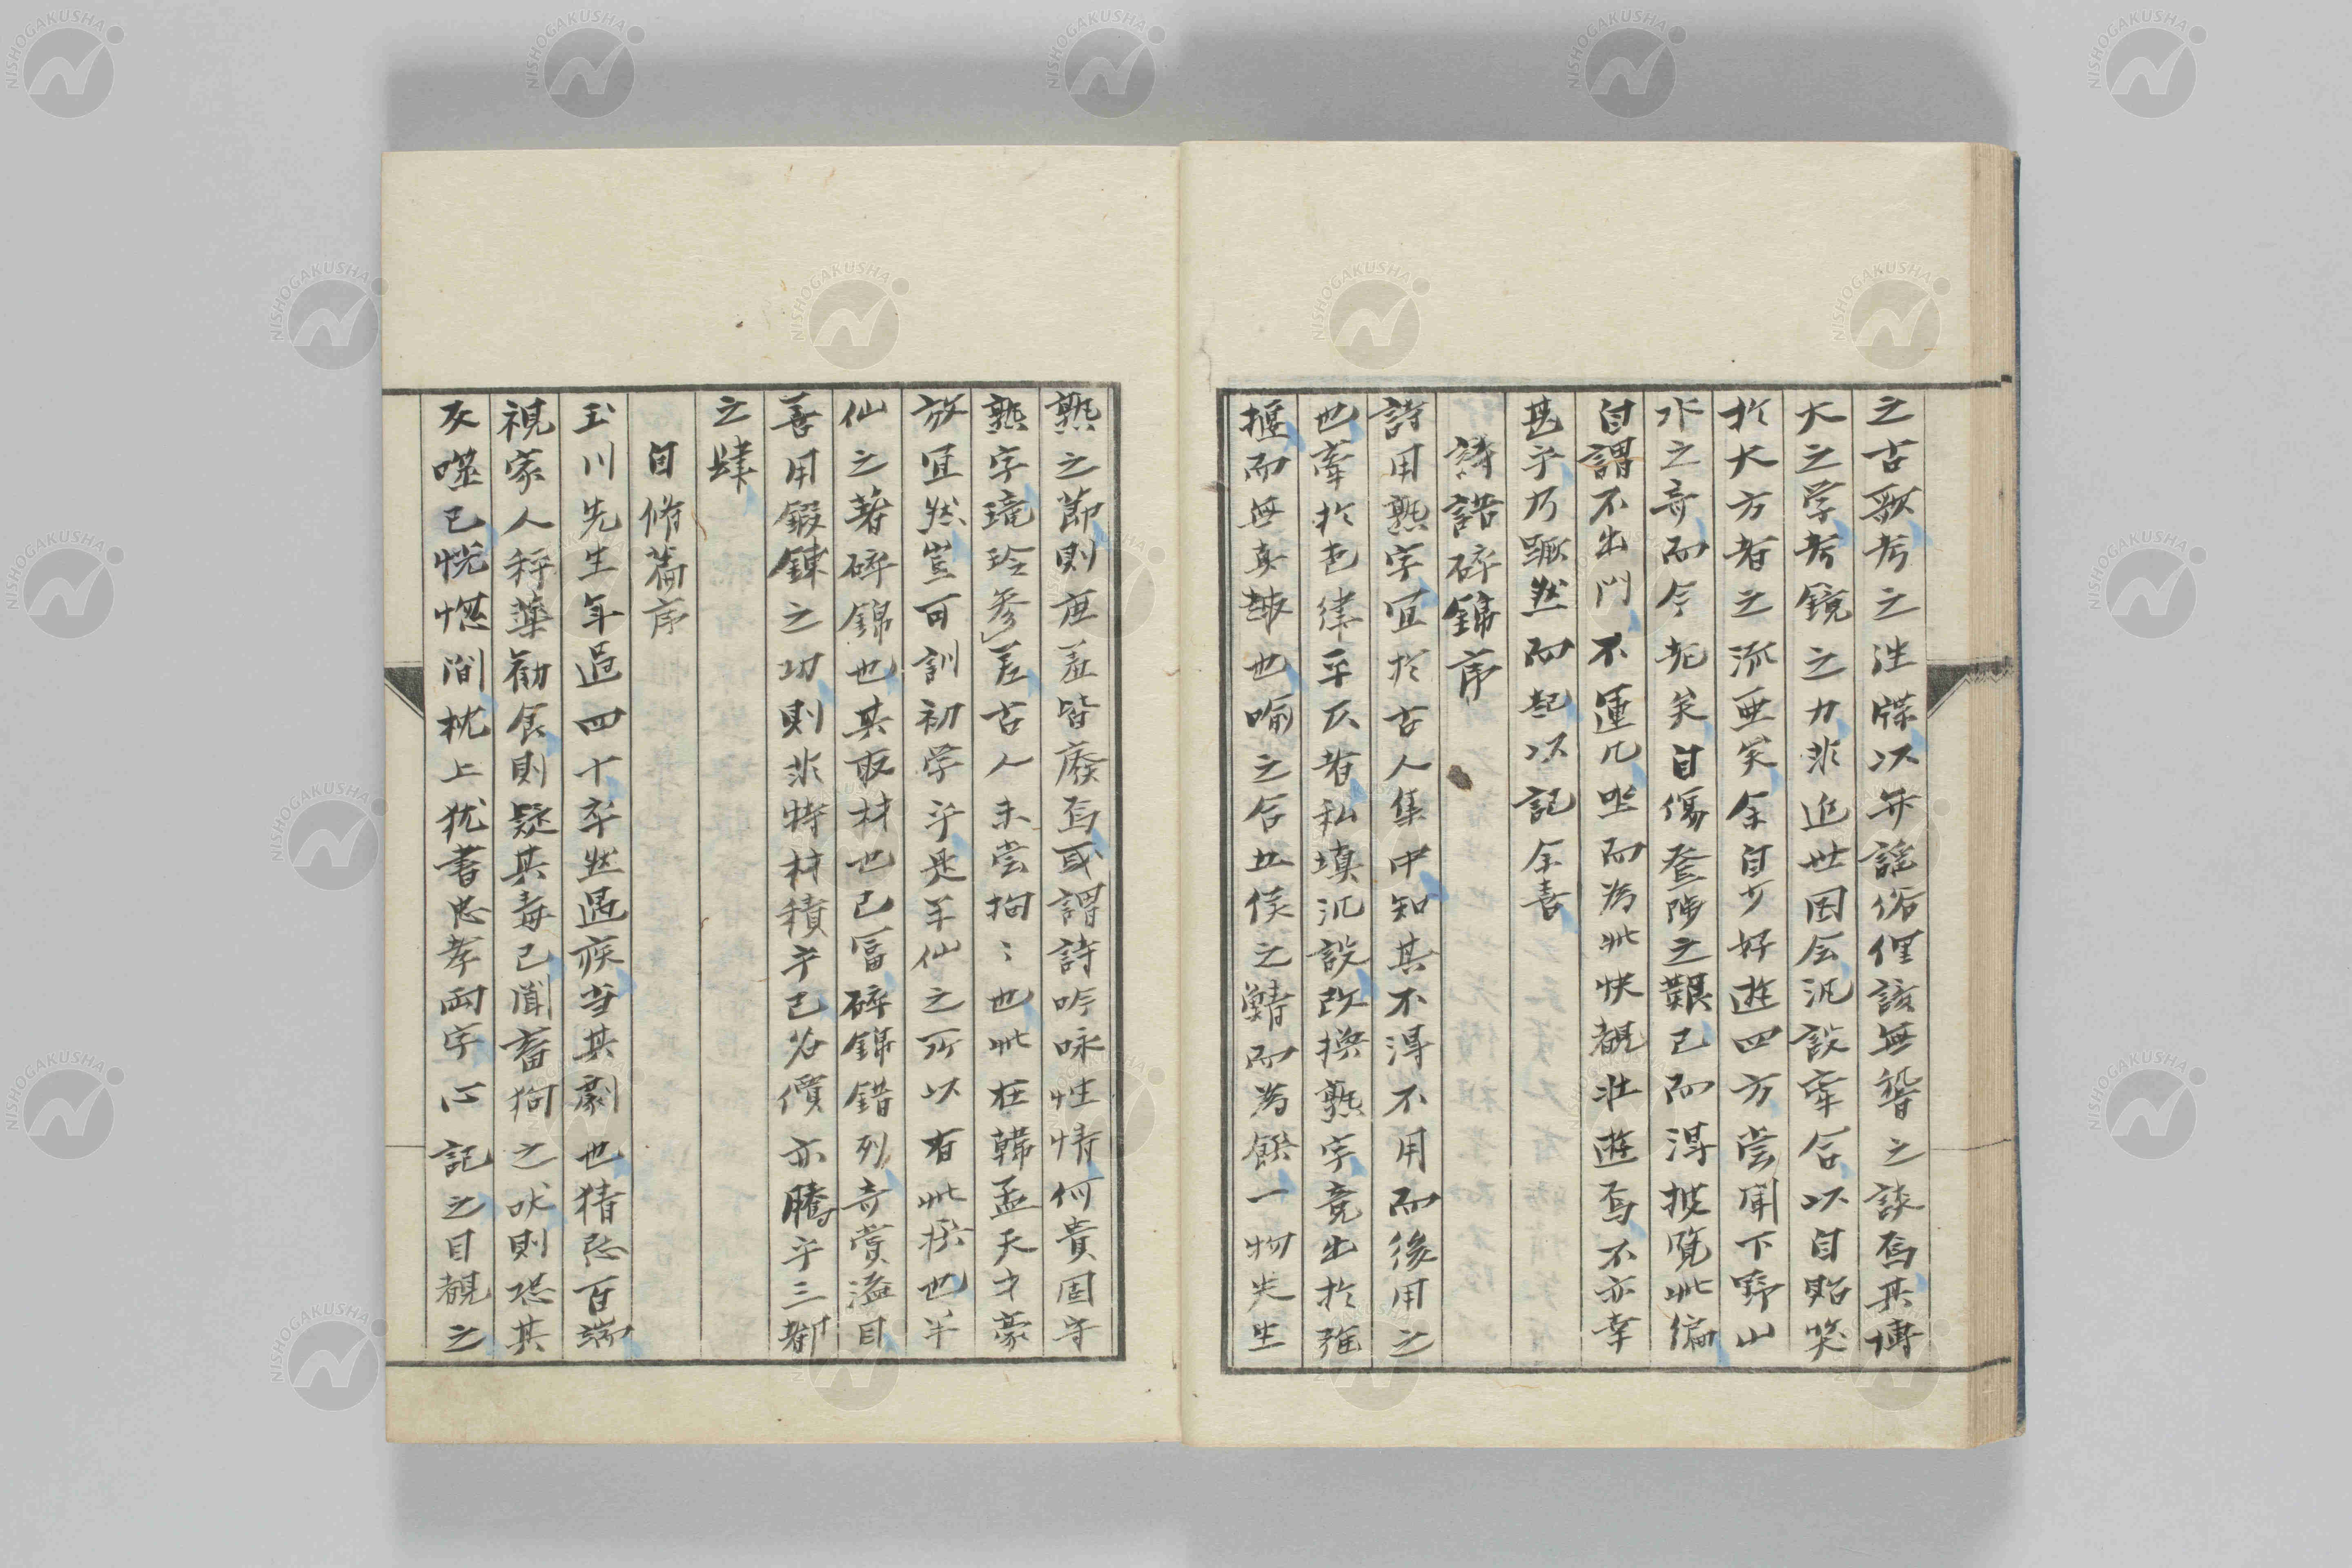 之古歌考之泩牒以弁謡俗俚談無稽之談焉其博
大之学考鏡之力非近世図会汎設牽合以自貽笑
於大方者之流亜矣余自少好遊四方嘗聞下野山
水之奇而今老矣自傷登陟之艱已而得披覧此編
自謂不出門不運几坐而為此快観壮遊焉不亦幸
甚乎乃蹶然而起以記余喜
詩語碎錦序
詩用熟字宜於古人集中知其不得不用而後用之
也牽於色律平仄者私填汎設改換熟字竟出於強
揠而無真趣也喩之合五侯之鯖而為饌一物失生
熟之節則庶羞皆廃焉或謂詩吟咏性情何貴固守
熟字瓏玲参差古人未嘗拘〻也此在韓孟天才豪
放宜然豈可訓初学乎是羊仙之所以有此撰也羊
仙之著碎錦也其取材也已富碎錦錯列奇賞溢目
善用鍛錬之功則非特材積乎已名價亦騰乎三都
之肆
自脩篇序
玉川先生年過四十卒然遇疾当其劇也猜忌百端
視家人秤薬勧食則疑其毒己聞畜狗之吠則恐其
灰噬已恍惚間枕上犹書忠孝両字心記之目観之